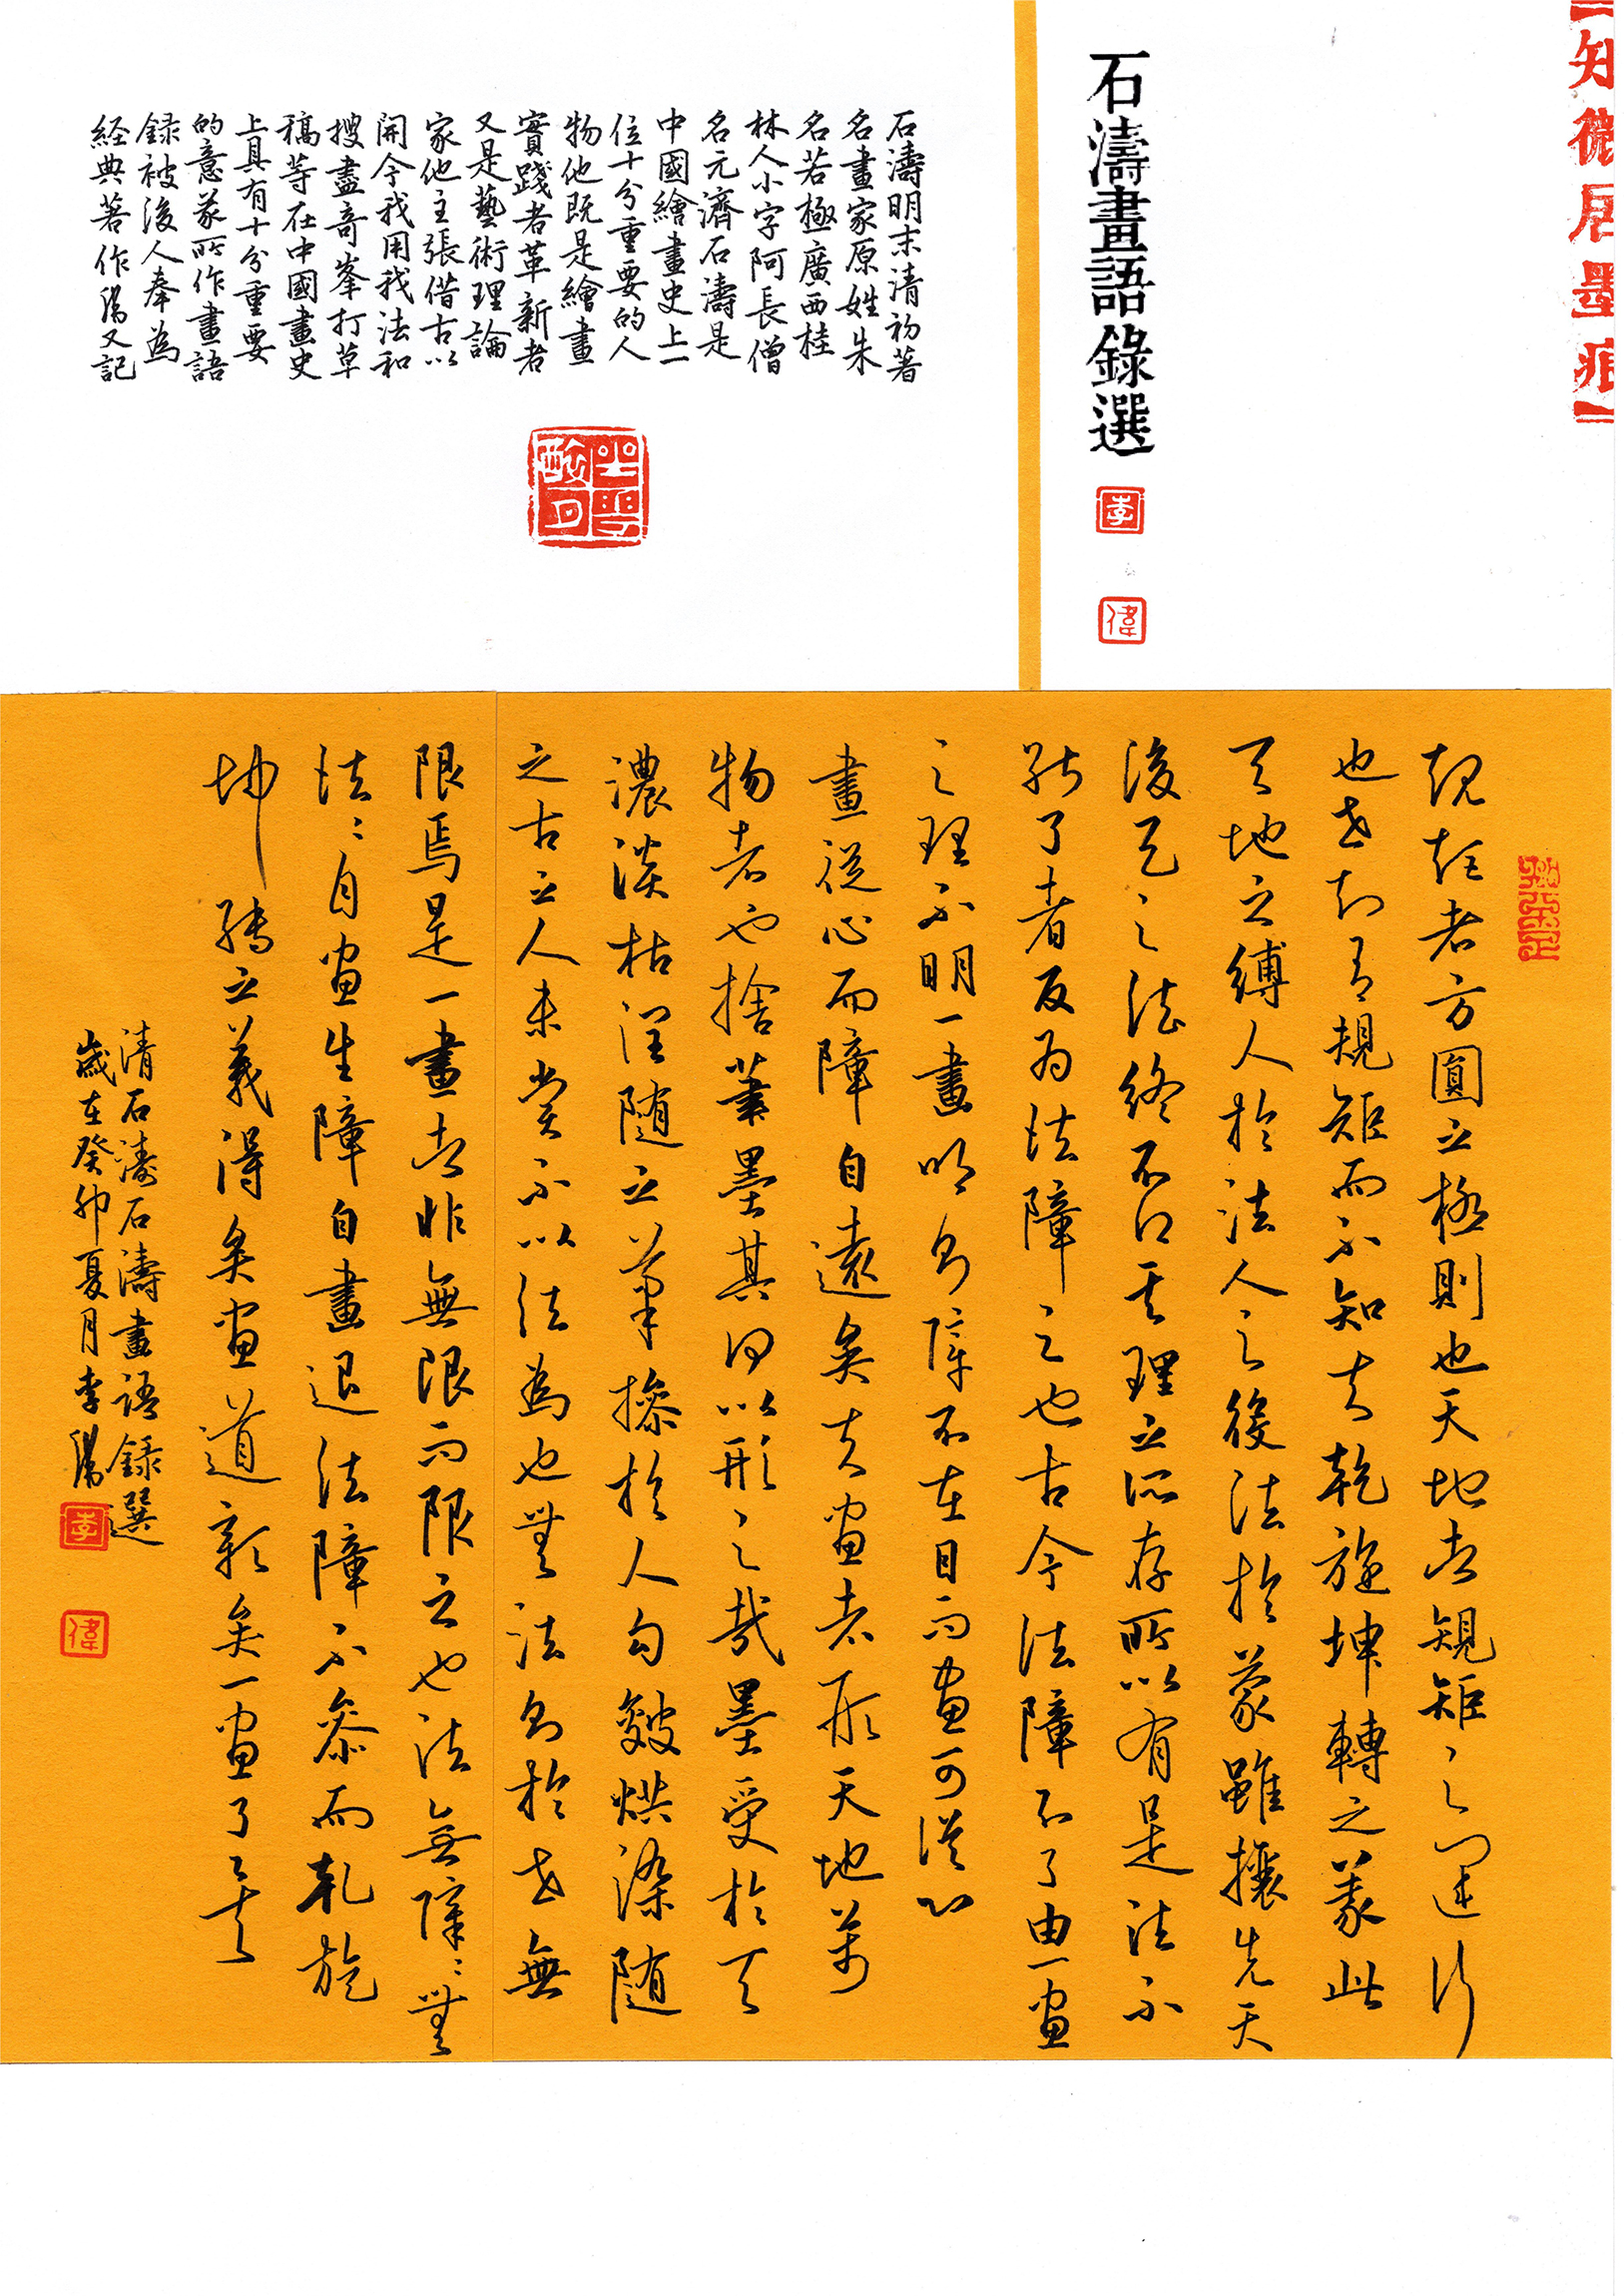 【知微居墨痕】
石濤畫語錄選
李
偉
石濤明末清初著
名畫家原姓朱
名若極廣西桂
林人小字阿長僧
名元濟石濤是
中國繪畫史上一
位十分重要的人
物他既是繪畫
實踐者革新者
又是藝術理論
家他主張借古以
開今我用我法和
搜盡奇峯打草
稿等在中國畫史
上具有十分重要
的意義所作畫語
録被後人奉為
経典著作偉又記
規矩者方圓之極則也天地者規矩之之運行
也世知有規矩而不知夫乾旋坤轉之義此
天地之縛人於法人之役法於蒙雖攘先天
後天之法終不得其理之所存所以有是法不
能了者反為法障之也古今法障不了由一畫
之理不明一畫明則障不在目而畫可從心
畫從心而障自遠矣夫畫者形天地萬
物者也捨筆墨其何以形之哉墨受於天
濃淡枯潤随之筆操於人勾皴烘染随
之古之人未嘗不以法為也無法則於世無
限焉是一畫者非無限而限之也法無障〻無
法〻自畫生障自畫退法障不參而乾旋
坤轉之義得矣畫道彰矣一畫了矣
清石濤石濤畫語録選
歲在癸卯夏月李偉
李
偉